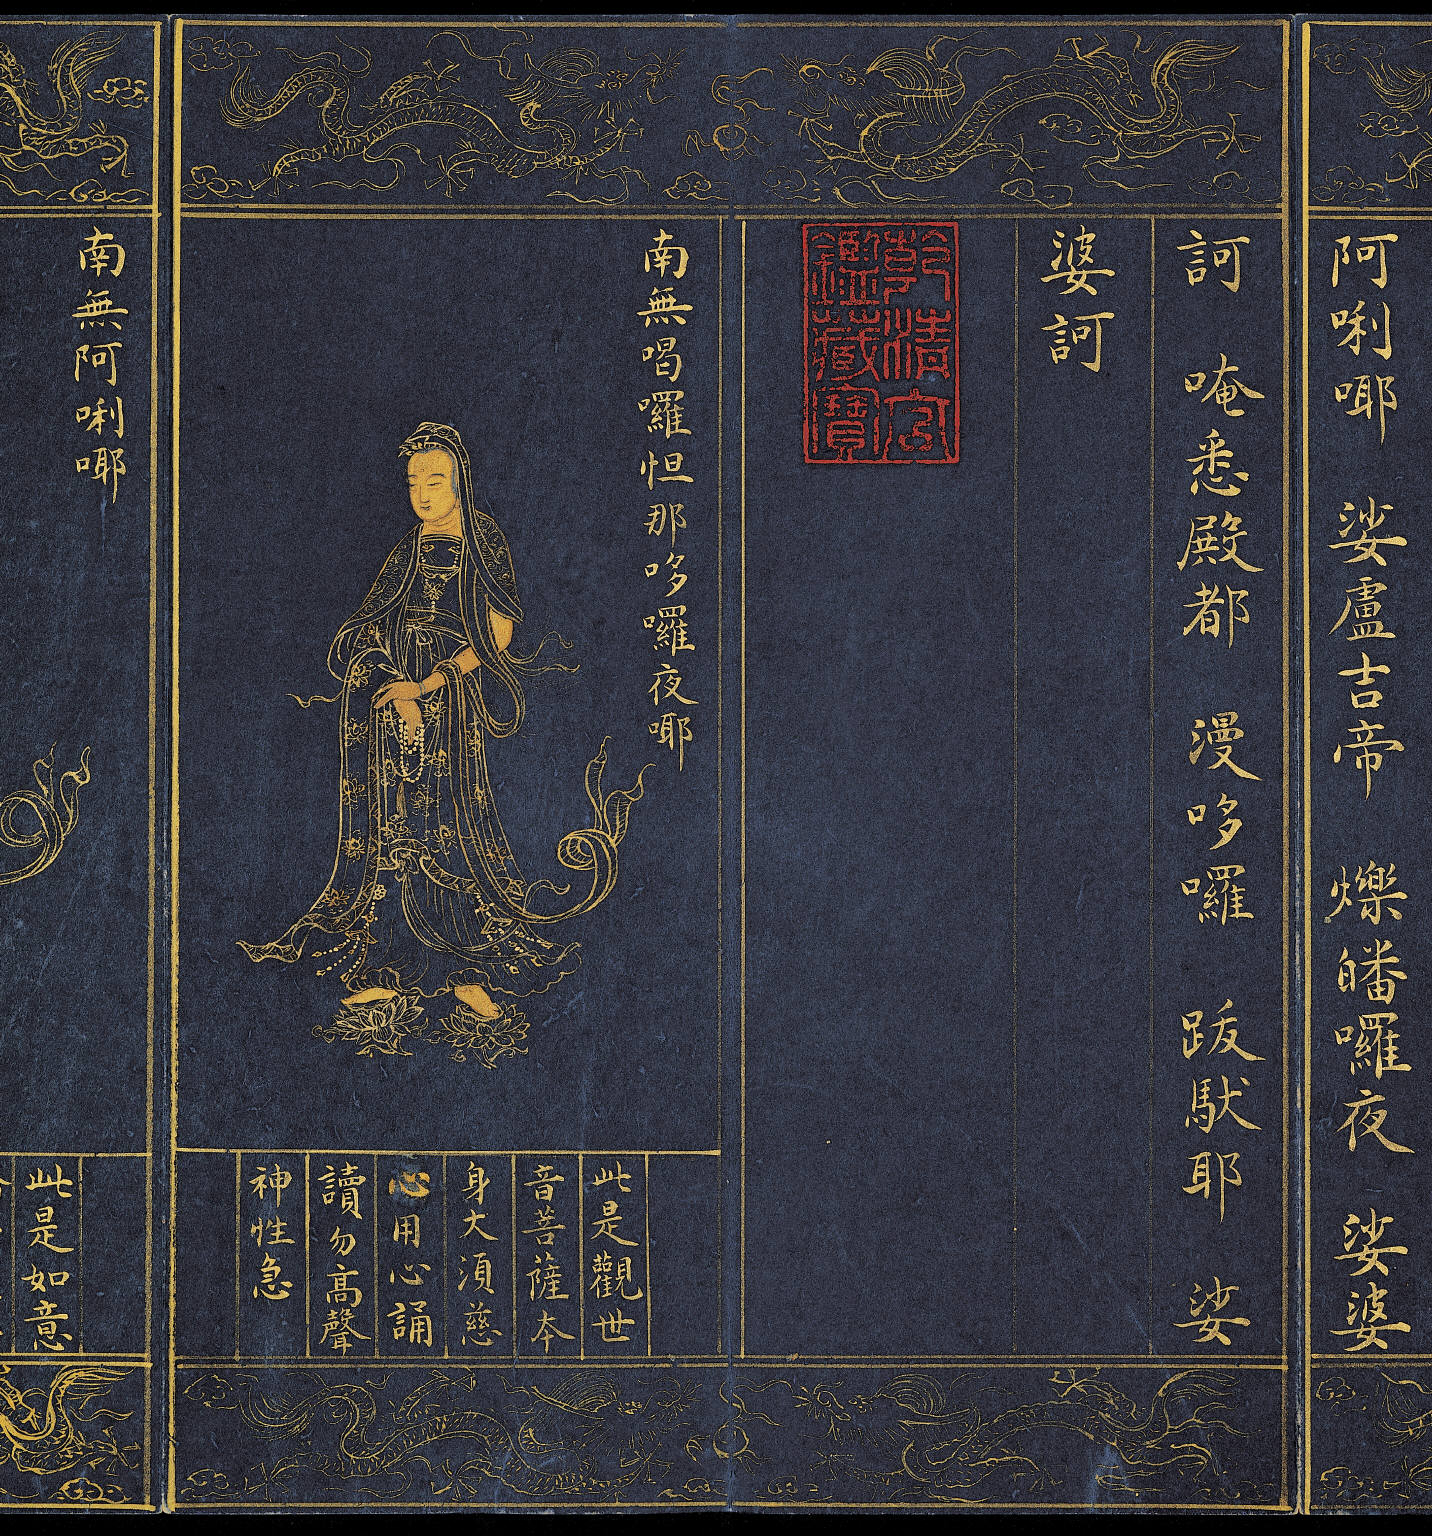 阿唎㖿 娑盧吉帝 爍皤囉夜 娑婆
訶 唵悉殿都 漫哆囉 跋馱耶 娑
婆訶
乾清宮
鑑藏寶
南無喝囉怛那哆囉夜㖿
此是觀世
音菩薩本
身大須慈
心用心誦
讀勿高聲
神性急
南無阿唎㖿
此是如意